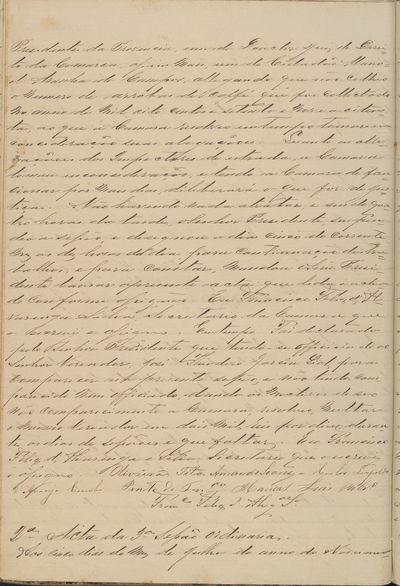 Presidente da Provincia, um do Doutor Juiz de Direi-
to da Comarca, apenso um do Cidadão Mano-
el de Campos, allegando que não colheo
o numero de arrobas de Caffé que foi collectado
no anno de mil oito centos e setenta e nove a oiten-
ta, ao que a Camara resolveo em tempo tomar em
consideração suas alegações. Quanto as alle-
gações dos Inspectores de estrada, a Camara
tomou em consideração, e tendo a Camara de func-
cionar por mais dias, deliberará o que for de jus-
tiça. Não havendo nada a tratar, e sendo qua-
tro horas da tarde, o Senhor Presidente suspen-
deo a sessão e designou o dia cinco do corrente
mez as dez horas do dia, para continuação dos tra-
balhos, e para constar, mandou o Senhor Presi-
dente lavrar a presente acta que lida e acha-
da conforme assignão. Eu Francisco Felix d'Al-
varenga Silva, Secretario da Camara que
o escrevi e assigno. Em tempo. Foi declarado
pelo Senhor Presidente que tendo se officiado ao
Senhor Vereador, José Theodoro Garcia Leal para
comparecer na presente sessão, e não tendo com-
parecido nem officiado, dando os motivos de seo
não comparecimento a Camara, resolveo, multar
o mesmo Vereador em dois mil reis por dia, duran-
te os dias de sessões que faltar. Eu Francisco
Felix d'Alvarenga e Silva, Secretario que o escrevi
e assigno.
Franco Felix d'Alvga Sa
2a Acta da 3a Sessão Ordinaria.
Aos cinco dias do mez de Julho do anno do Nascimen-